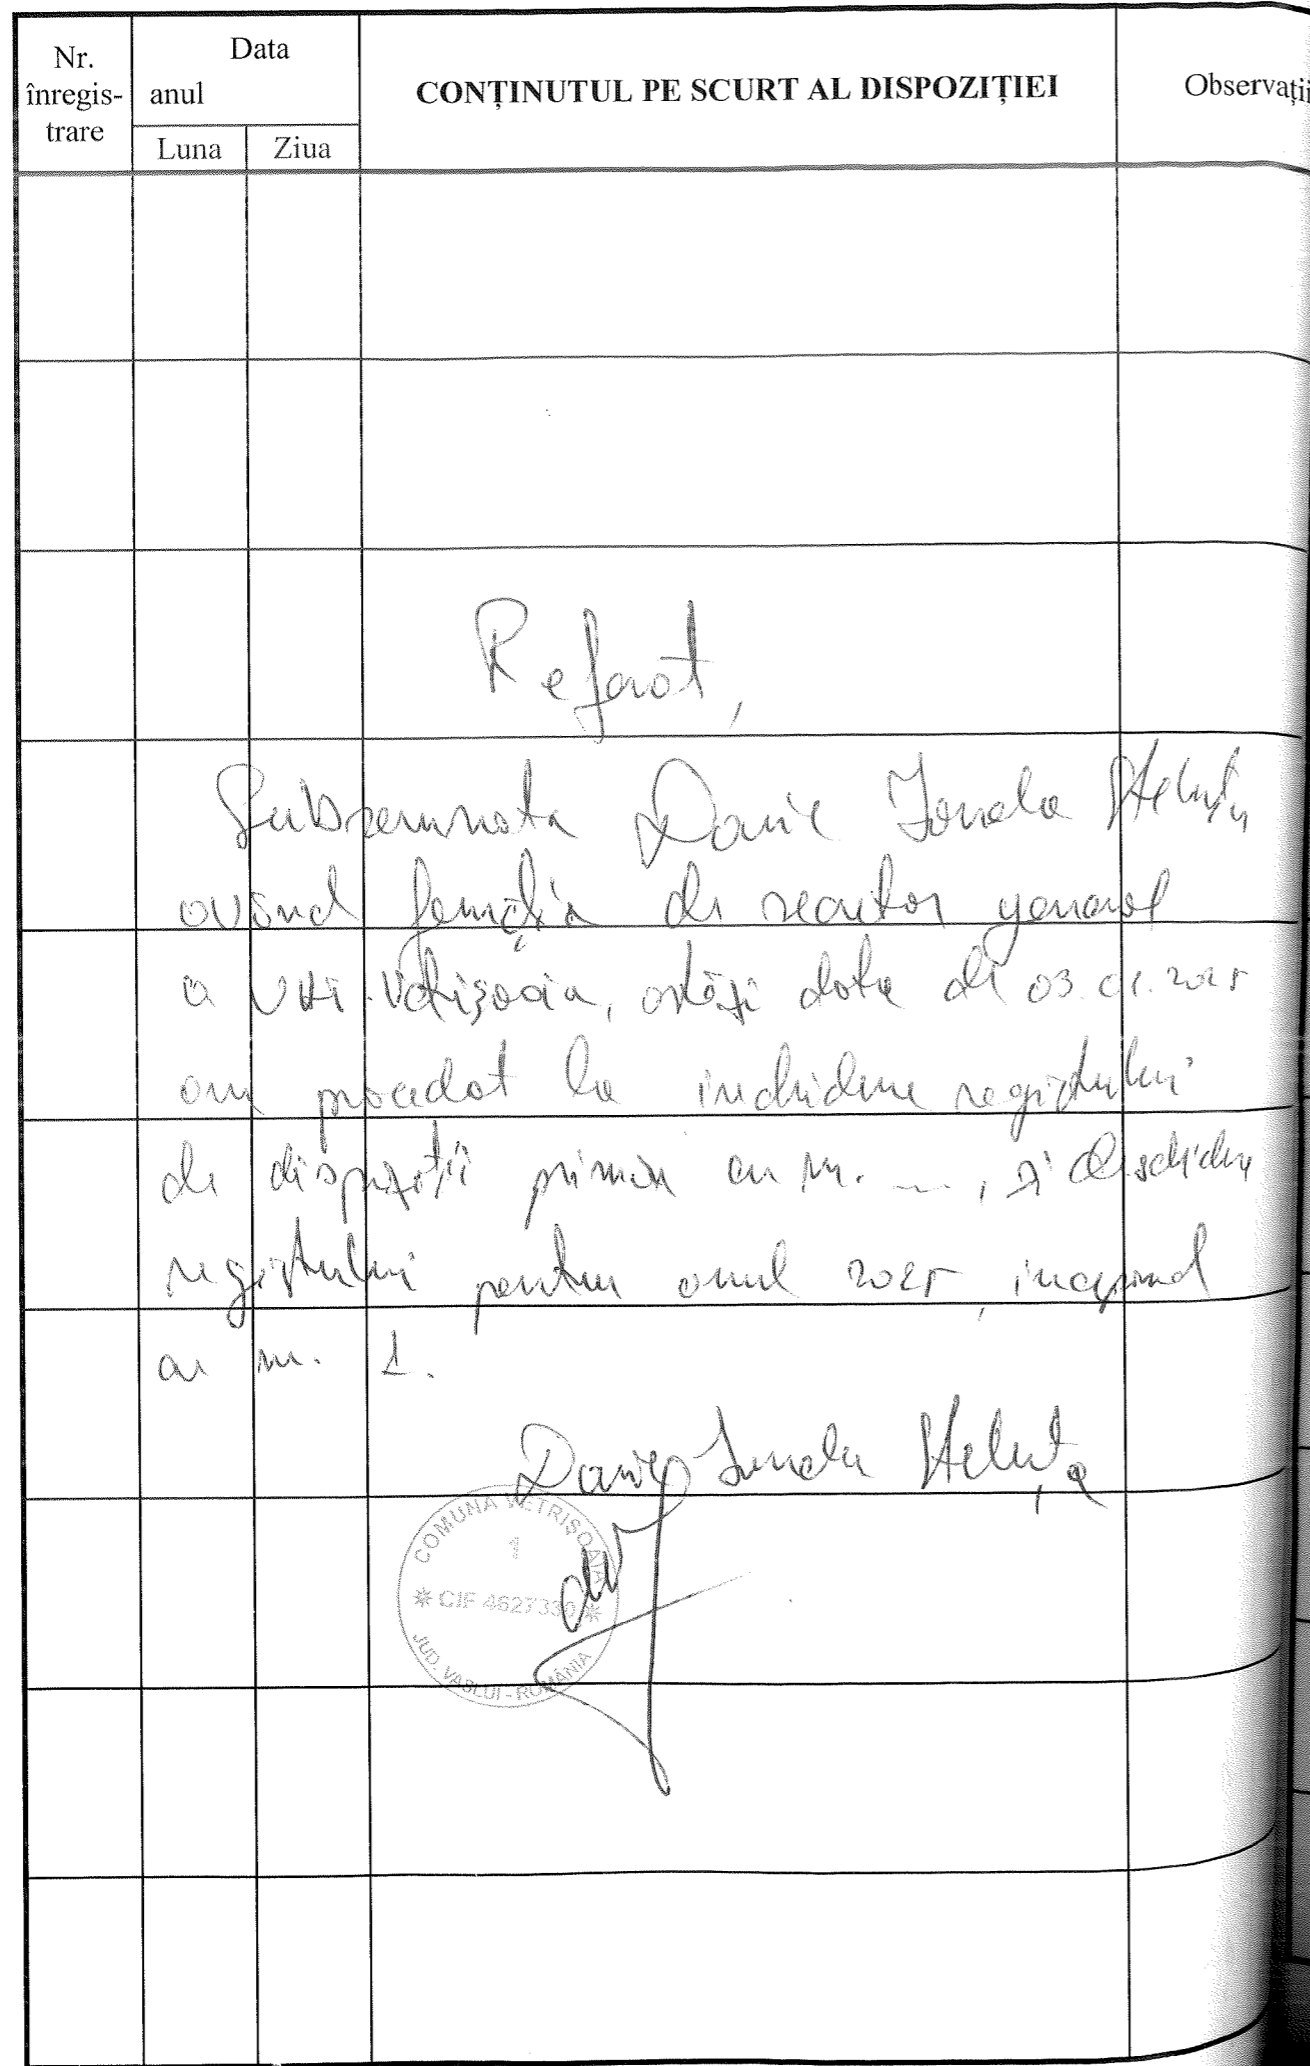 Nr. înregis-trare
Data
anul
Luna
Ziua
CONȚINUTUL PE SCURT AL DISPOZIȚIEI
Observații
Referat,
Subsemnata Ionela Steluța
având funcția de secretar general
a UAT Vetrișoaia, astăzi data de 03.01.2025
am procedat la închidere registrului
de dispoziții cu nr. __, și deschidere
registrului pentru anul 2025, începând
cu nr. 1.
Ionela Steluța
COMUNA VETRIȘOAIA
1
* CIF 4627330 *
JUD. VASLUI - ROMÂNIA